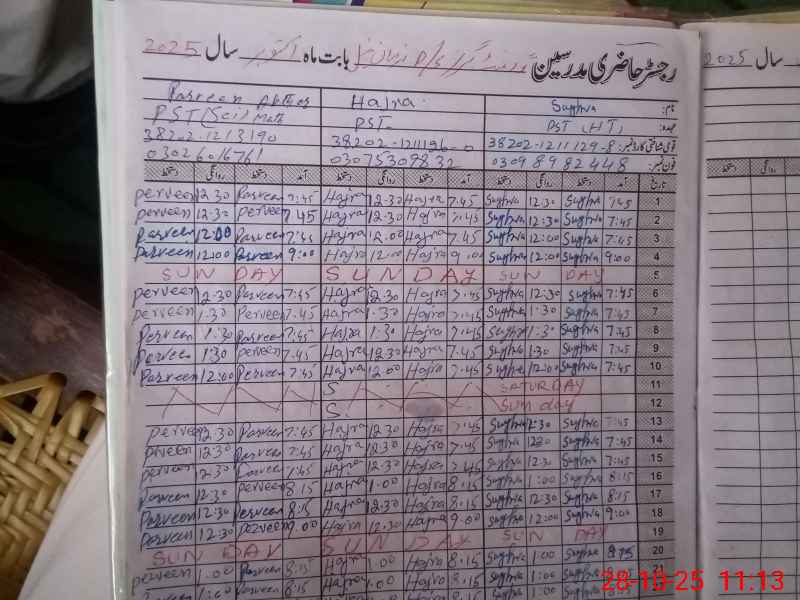 رجسٹر حاضری مدرسین بابت ماہ اکتوبر سال 2025
2025 سال
نام: Sughra Hajra Parveen Akhter
عہدہ: PST (HT) PST PST/Sci/Math
قومی شناختی کارڈ نمبر: 38202-1211129-8 38202-1211196-0 38202-1213190
فون نمبر: 0309 8982448 03075309832 03026016761
تاریخ آمد دستخط روانگی دستخط آمد دستخط روانگی دستخط آمد دستخط روانگی دستخط
1 7:45 Sughra 12:30 Sughra 7.45 Hajra 12.30 Hajra 7:45 Parveen 12.30 perveen
2 7:45 Sughra 12:30 Sughra 7.45 Hajra 12.30 Hajra 7 45 perveen 12.30 perveen
3 7:45 Sughra 12:00 Sughra 7.45 Hajra 12.00 Hajra 7:45 Parveen 12:00 Parveen
4 9:00 Sughra 12:00 Sughra 9.00 Hajra 12.00 Hajra 9:00 Parveen 12:00 Parveen
5 SUN DAY SUNDAY SUN DAY
6 7:45 Sughra 12:30 Sughra 7.45 Hajra 12.30 Hajra 7:45 Parveen 12.30 perveen
7 7:45 Sughra 1:30 Sughra 7.45 Hajra 1.30 Hajra 7:45 Perveen 1.30 perveen
8 7:45 Sughra 1:30 Sughra 7.45 Hajra 1:30 Hajra 7:45 Parveen 1:30 Parveen
9 7:45 Sughra 1:30 Sughra 7.45 Hajra 12.30 Hajra 7.45 perveen 1:30 Perveen
10 7:45 Sughra 12:00 Sughra 7.45 Hajra 12.00 Hajra 7:45 Perveen 12:00 Parveen
11 SATURDAY S
12 Sunday S
13 7:45 Sughra 12:30 Sughra 7.45 Hajra 12.30 Hajra 7:45 Parveen 12.30 perveen
14 7:45 Sughra 12:30 Sughra 7.45 Hajra 12.30 Hajra 7:45 Parveen 12:30 perveen
15 7:45 Sughra 12:30 Sughra 7.45 Hajra 12.30 Hajra 7:45 Parveen 12:30 perveen
16 8:15 Sughra 1:00 Sughra 8.15 Hajra 1.00 Hajra 8.15 perveen 12.30 Parveen
17 8:15 Sughra 12:30 Sughra 8.15 Hajra 12.30 Hajra 8:15 Perveen 12.30 Parveen
18 9:00 Sughra 12:00 Sughra 9.00 Hajra 12.30 Hajra 9.00 perveen 12.30 Parveen
19 SUN DAY SUNDAY SUN DAY
20 Sughra 1:00 Sughra 8.15 Hajra 1.00 Hajra 8:15 Parveen 1:00 perveen
21 Sughra 1:00 Sughra 8.15 Hajra 1.00 Hajra 8:15
28-10-25 11:13